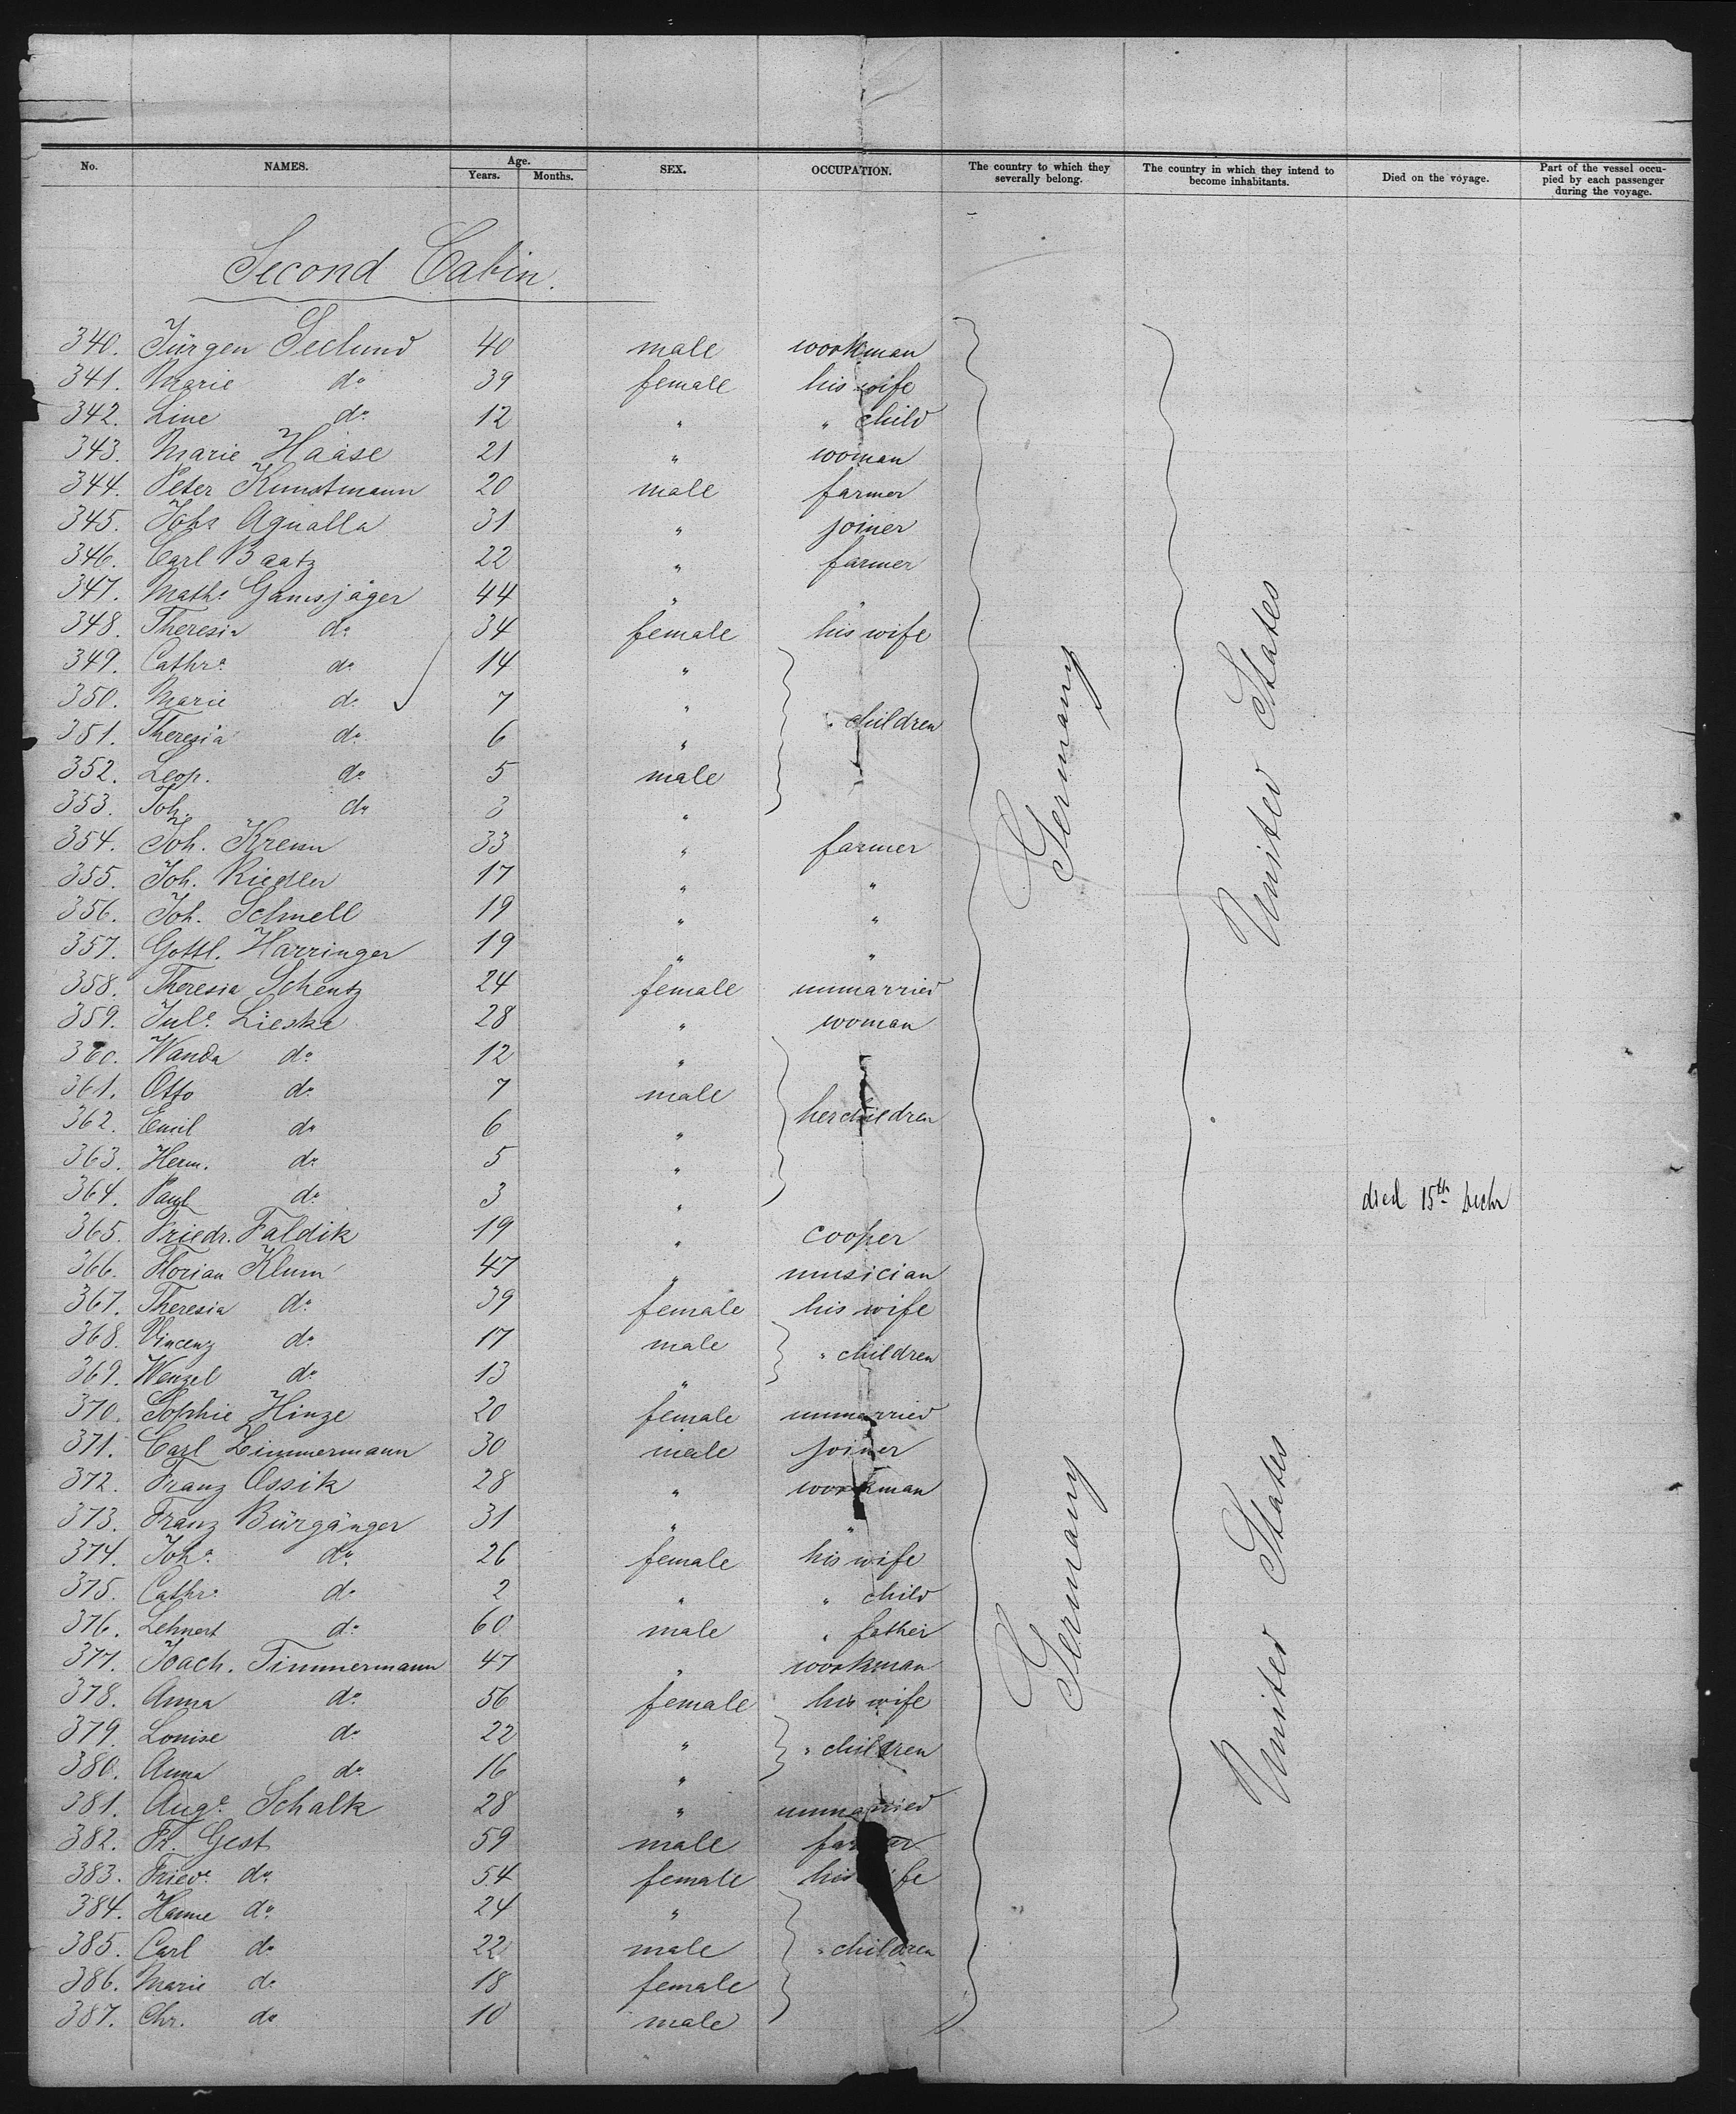 No. NAMES. Age. Years. Months. SEX. OCCUPATION. The country to which they severally belong. The country in which they intend to become inhabitants. Died on the voyage. Part of the vessel occupied by each passenger during the voyage.
Second Cabin.
340. Jürgen Seelund 40 male workman
341. Marie do 39 female his wife
342. Line do 12 " " child
343. Marie Haase 21 " woman
344. Peter Kunstmann 20 male farmer
345. Johs Agualla 31 " joiner
346. Carl Baatz 22 " farmer
347. Maths Gamsjäger 44 " "
348. Theresia do 34 female his wife
349. Cathre do 14 "
350. Marie do 7 "
351. Theresia do 6 " " children
352. Leop. do 5 male
353. Joh. do 3 "
354. Joh. Krenn 33 " farmer
355. Joh. Riedler 17 " "
356. Joh. Schnell 19 " "
357. Gottl. Harringer 19 " "
358. Theresia Schentz 24 female unmarried
359. Jule Lieske 28 " woman
360. Wanda do 12 "
361. Otto do 7 male
362. Emil do 6 " her children
363. Herm. do 5 "
364. Paul do 3 " died 15th Decbr
365. Friedr. Faldik 19 " cooper
366. Florian Klum 47 " musician
367. Theresia do 39 female his wife
368. Vincenz do 17 male " children
369. Wenzel do 13 "
370. Sophie Hinze 20 female unmarried
371. Carl Zimmermann 30 male joiner
372. Franz Ossik 28 " workman
373. Franz Bürgänger 31 " "
374. Joha do 26 female his wife
375. Cathr. do 2 " " child
376. Lehnert do 60 male " father
377. Joach. Timmermann 47 " workman
378. Anna do 56 female his wife
379. Louise do 22 " " children
380. Anna do 16 "
381. Auge Schalk 28 " unmarried
382. Fr. Gest 59 male farmer
383. Friede do 54 female his wife
384. Hanne do 24 "
385. Carl do 22 male " children
386. Marie do 18 female
387. Chr. do 10 male
Germany
United States
Germany
United States